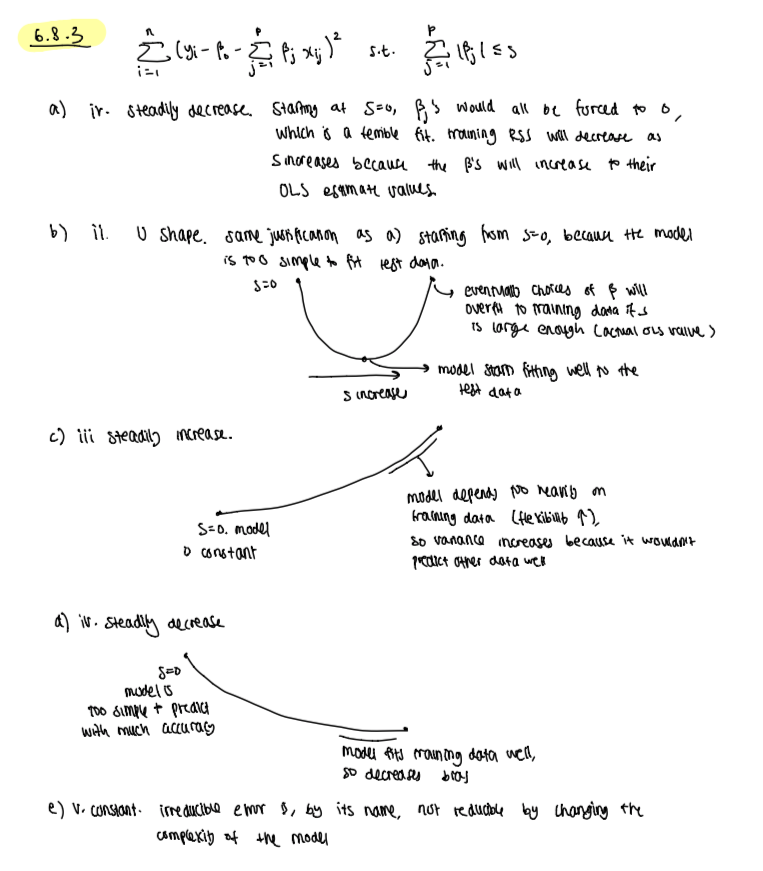 6.8.3
n Σ i=1 (yi - β₀ - p Σ j=1 βj xij)² s.t. p Σ j=1 |βj| ≤ s
a) iv. steadily decrease. starting at s=0, βj's would all be forced to 0,
which is a terrible fit. training RSS will decrease as
s increases because the β's will increase to their
OLS estimate values.
b) ii. U shape. same justification as a) starting from s=0, because the model
is too simple to fit test data.
s=0
eventually choices of β will
overfit to training data if s
is large enough (actual OLS value)
model starts fitting well to the
test data
s increase
c) iii steadily increase.
s=0. model
is constant
model depends too heavily on
training data (flexibility ↑),
so variance increases because it wouldn't
predict other data well
d) iv. steadily decrease
s=0
model is
too simple + predict
with much accuracy
model fits training data well,
so decreases bias
e) v. constant. irreducible error is, by its name, not reducible by changing the
complexity of the model